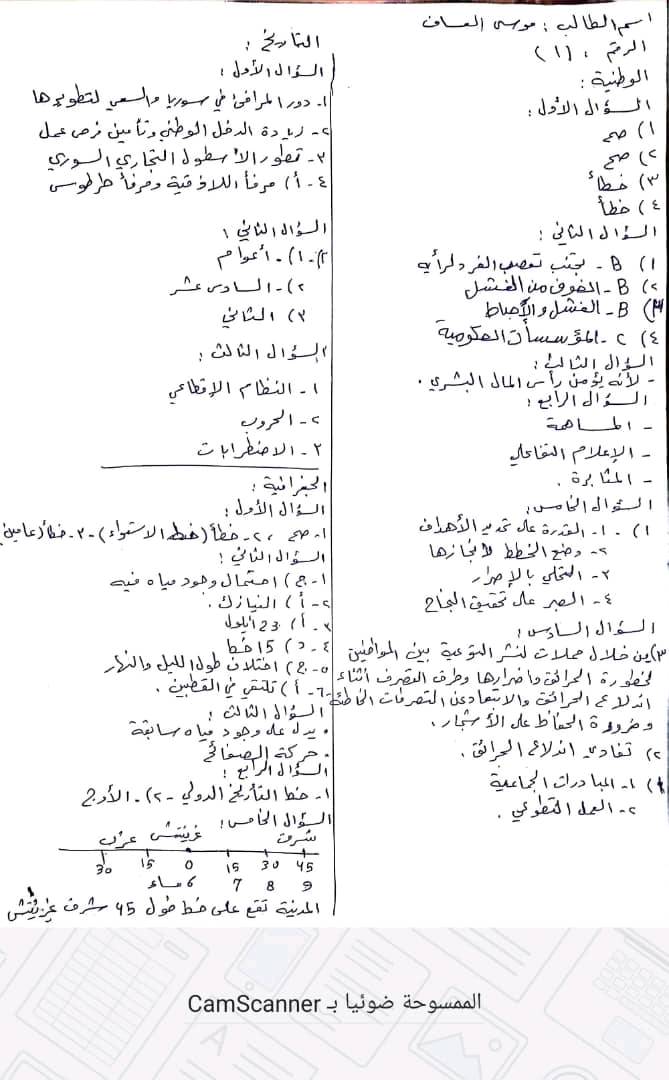 اسم الطالب : موسى العساف
الرقم : (١)
الوطنية :
السؤال الأول :
١) صح
٢) صح
٣) خطأ
٤) خطأ
السؤال الثاني :
١) B - تجنب تعصب الفرد لرأيه
٢) B - الخوف من الفشل
٣) B - الفشل والإحباط
٤) C - المؤسسات الحكومية
السؤال الثالث :
- لأنه يؤمن رأس المال البشري .
السؤال الرابع :
- المساهمة
- الإعلام التفاعلي
- المثابرة .
السؤال الخامس :
١) - ١- القدرة على تحديد الأهداف
٢- وضع الخطط لإنجازها
٣- التحلي بالإصرار
٤- الصبر على تحقيق النجاح
السؤال السادس :
٣) من خلال حملات لنشر التوعية بين المواطنين
لخطورة الحرائق واضرارها وطرق التصرف أثناء
اندلاع الحرائق والابتعاد عن التصرفات الخاطئة
وضرورة الحفاظ على الأشجار .
٢) تفادي اندلاع الحرائق .
١) ١- المبادرات الجماعية
٢- العمل التطوعي .
التاريخ :
السؤال الأول :
١- دور المرافئ في سوريا والسعي لتطويرها
٢- زيادة الدخل الوطني وتأمين فرص عمل
٣- تطور الأسطول التجاري السوري
٤- أ) مرفأ اللاذقية ومرفأ طرطوس
السؤال الثاني :
١) - أعوام
٢) - السادس عشر
٣) الثاني
السؤال الثالث :
١- النظام الإقطاعي
٢- الحروب
٣- الاضطرابات
الجغرافية :
السؤال الأول :
١- صح ، ٢- خطأ (خط الاستواء) - ٣- خطأ (عامين
السؤال الثاني :
١- ج) احتمال وجود مياه فيه
٢- أ) النيازك .
٣- أ) 23 أيلول
٤- د) 15 خط
٥- ج) اختلاف طول الليل والنهار
٦- أ) تلتقي في القطبين .
السؤال الثالث :
• يدل على وجود مياه سابقة
• حركة الصفائح
السؤال الرابع :
١- خط التأريخ الدولي - ٢) - الأوج
السؤال الخامس :
شرق غرينتش غرب
45 30 15 0 15 30
9 8 7 6 مساء
المدينة تقع على خط طول 45 شرق غرينتش
الممسوحة ضوئيا بـ CamScanner